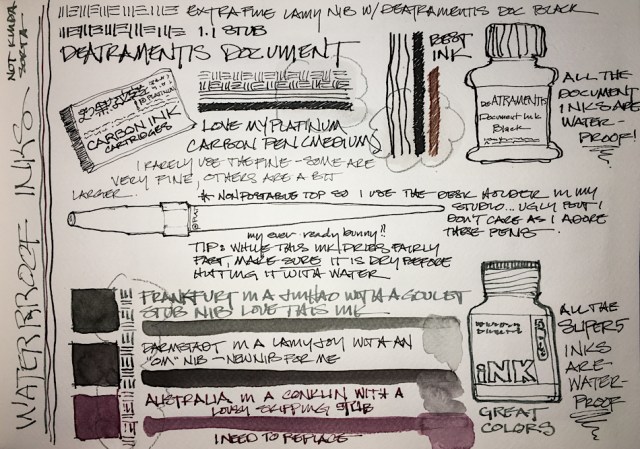 WATERPROOF INKS
NOT KINDA
SORTA
EXTRA FINE LAMY NIB W/ DEATRAMENTIS DOC BLACK
1.1 STUB
DEATRAMENTIS DOCUMENT
BEST
INK
PLATINUM
CARBON INK
CARTRIDGES
LOVE MY PLATINUM
CARBON PEN (MEDIUM)
I RARELY USE THE FINE - SOME ARE
VERY FINE, OTHERS ARE A BIT
LARGER
DeATRAMENTIS
Document Ink
Black
ALL THE
DOCUMENT
INKS ARE
WATER-
PROOF!
* NON POSTABLE TOP SO I USE THE DESK HOLDER IN MY
STUDIO... UGLY BUT I
DON'T CARE AS I ADORE
THESE PENS
my ever ready bunny!!
TIP: WHILE THIS INK DRIES FAIRLY
FAST, MAKE SURE IT IS DRY BEFORE
HITTING IT WITH WATER
FRANKFURT IN A JINHAO WITH A GOULET
STUB NIB LOVE THIS INK
DARMSTADT IN A LAMY JOY WITH AN
NIB - NEW NIB FOR ME
AUSTRALIA IN A CONKLIN WITH A
LOUSY SKIPPING STUB
I NEED TO REPLACE
iNK
GREAT
COLORS
ALL THE
SUPER5
INKS
ARE
WATER-
PROOF